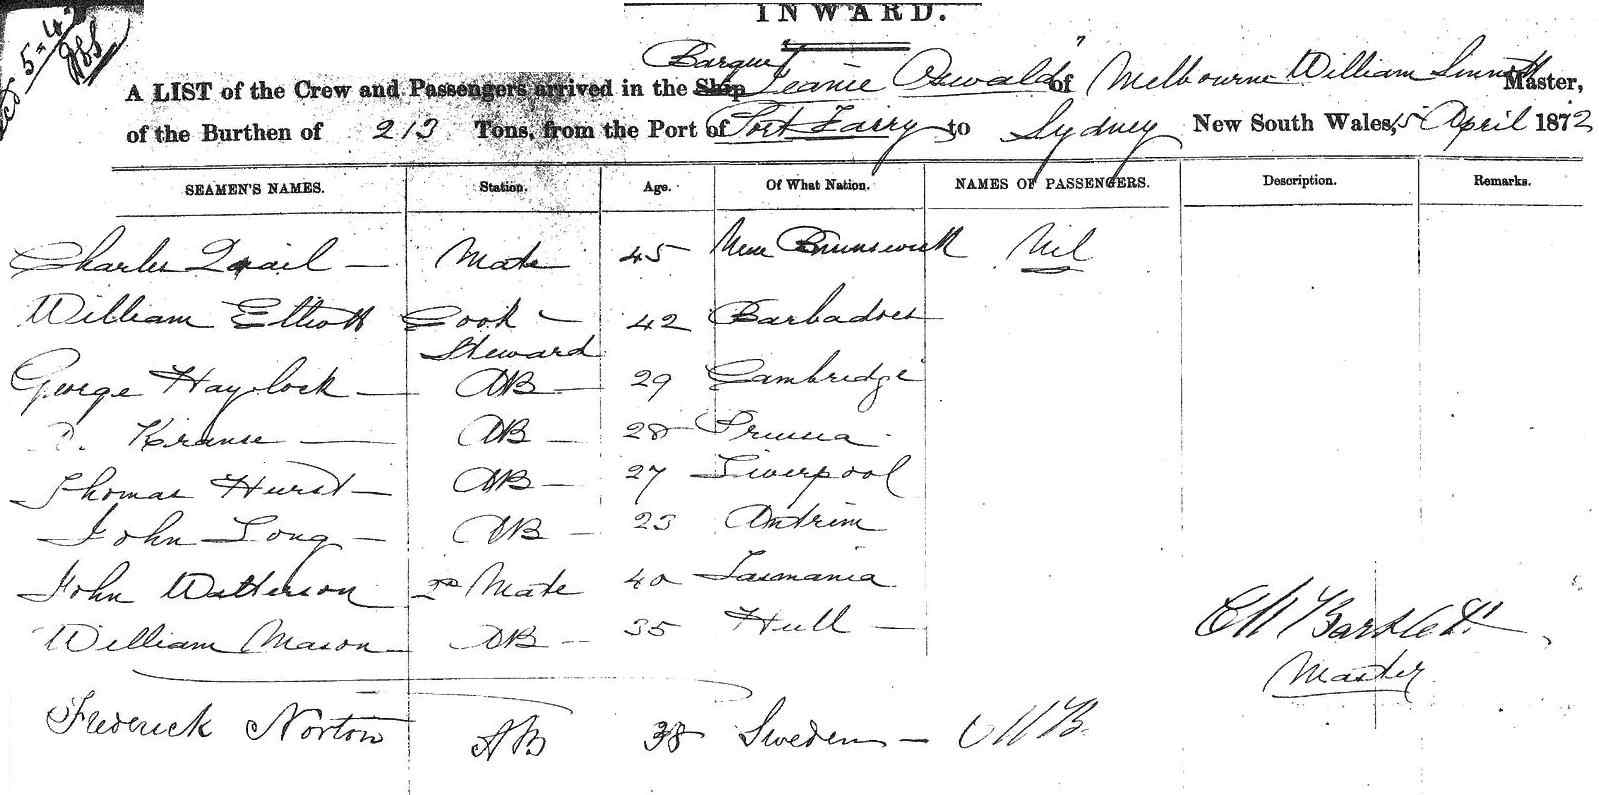 5-4
INWARD.
Barque
A LIST of the Crew and Passengers arrived in the Ship "Jeanie Oswald" of Melbourne William Sinnott Master,
of the Burthen of 213 Tons, from the Port of Port Fairy to Sydney New South Wales, 5 April 1872
SEAMEN'S NAMES. Station. Age. Of What Nation. NAMES OF PASSENGERS. Description. Remarks.
Charles Quail — Mate 45 New Brunswick Nil
William Elliott Cook - 42 Barbadoes
Steward
George Haylock — AB — 29 Cambridge
Krause — AB — 28 Prussia
Thomas Hurst — AB — 27 Liverpool
John Long — AB — 23 Antrim
John Watterson 2nd Mate 40 Tasmania
William Mason — AB — 35 Hull —
Bartlett
Master
Frederick Norton AB 38 Sweden —